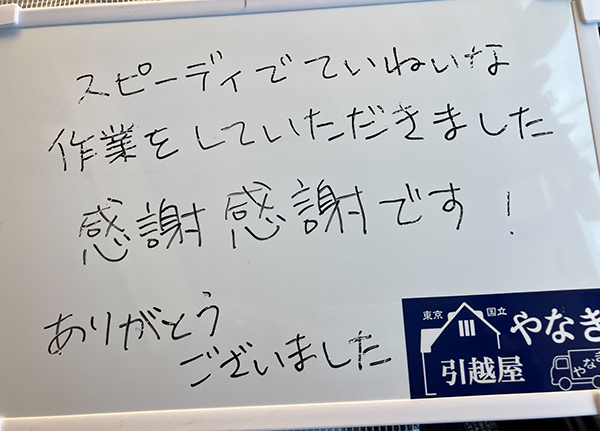 スピーディでていねいな
作業をしていただきました
感謝感謝です!
ありがとう
ございました
東京 国立
やなぎ
引越屋
やなぎ